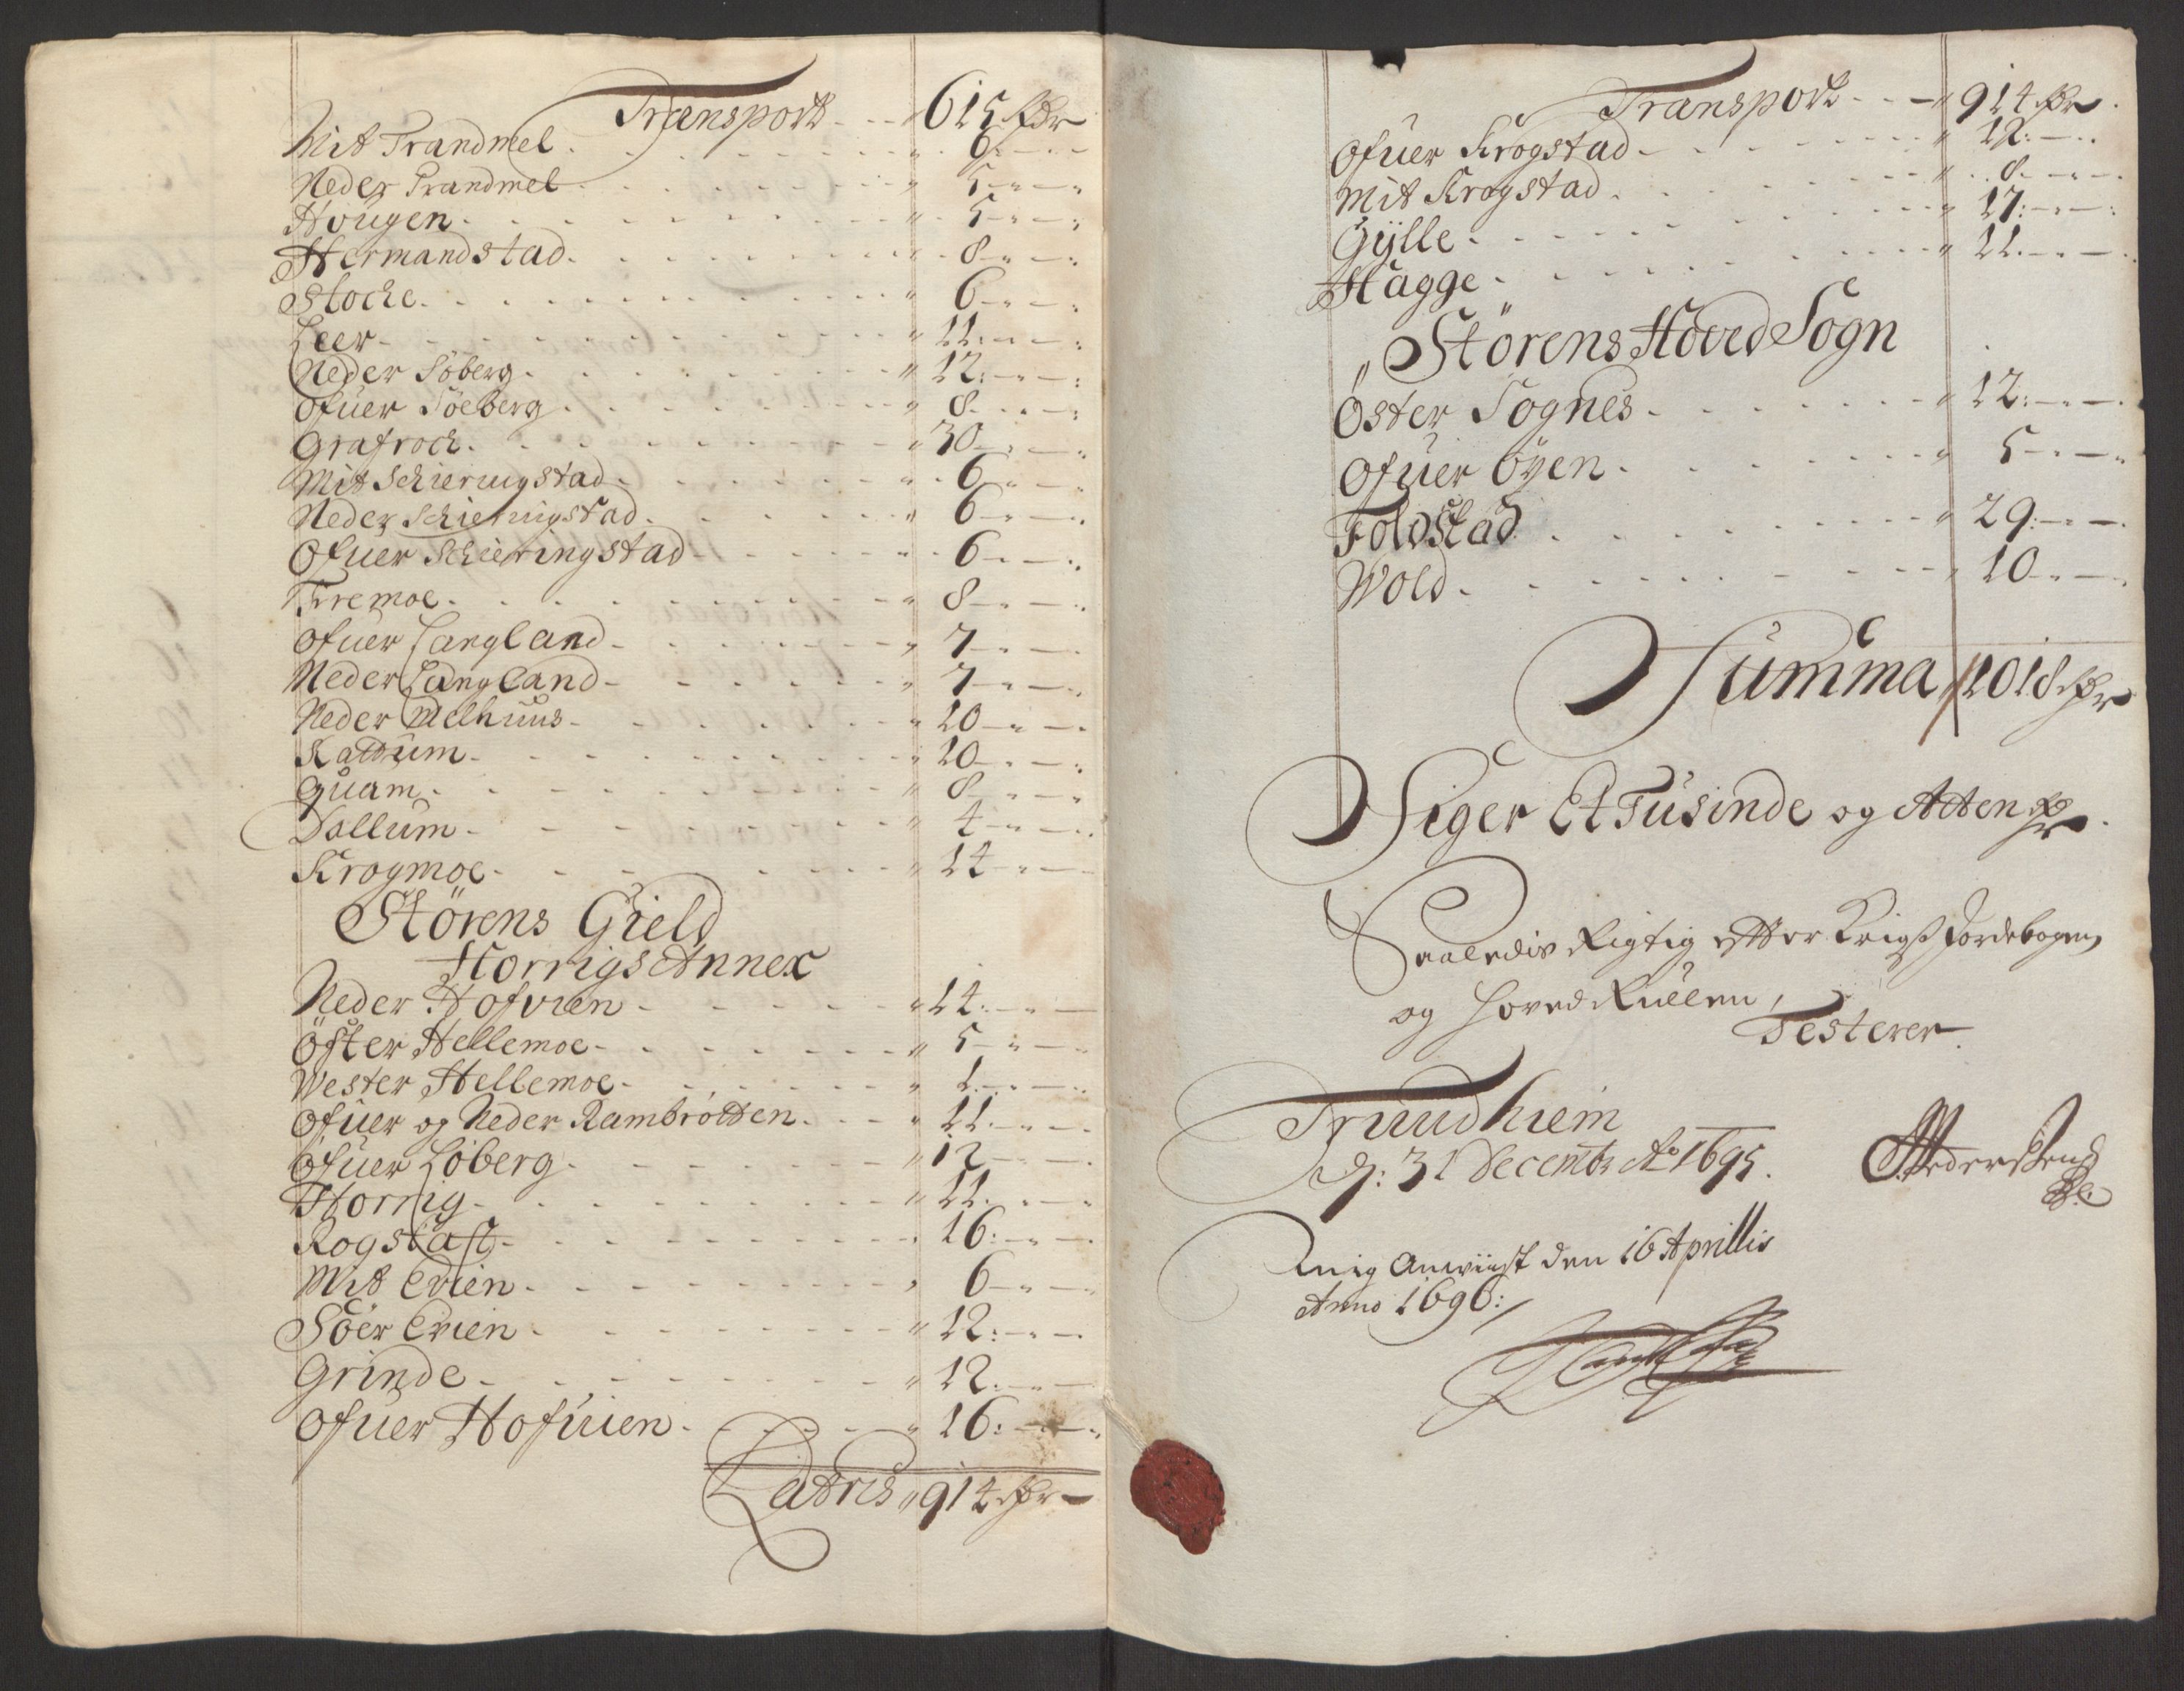 Transport - - - 615 Pdr
Mit Trandmel - 6
Neder Trandmel - 5
Hougen - 5
Hermandstad - 8
Stocke - 6
Leer - 11
Neder Söberg - 12
Ofuer Söeberg - 8
Grafrock - 30
Mit Schieringstad - 6
Neder Schieringstad - 6
Ofuer Schieringstad - 6
Fremoe - 8
Ofuer Langland - 7
Neder Langland - 7
Neder Melhuus - 10
Kattum - 10
Quam - 8
Dollum - 4
Krogmoe - 14
Störens Gield
Horrigs Annex
Neder Hofvien - 14
Öster Hellemoe - 5
Wester Hellemoe - 1
Ofuer og Neder Rambrötten - 11
Ofuer Löberg - 12
Horrig - 11
Rogstad - 16
Mit Evien - 6
Söer Evien - 12
Grinde - 12
Ofuer Hofuien - 16
Latris 914 Pdr
Transport - - - 914 Pdr
Ofuer Krogstad - 12
Mit Krogstad - 8
Gylle - 17
Hagge - 11
Störens Hoved Sogn
Öster Sognes - 12
Ofuer Öyen - 5
Foldstad - 29
Wold - 10
Summa 1018 Pdr
Siger Et Tusinde og Atten Pdr
Saaledis Rigtig efter Krigs Jordebogen
og Hoved Rullen,
Testerer
Trundhiem
d: 31 Decembr Ao 1695.
Pedersen
Anno 1696: